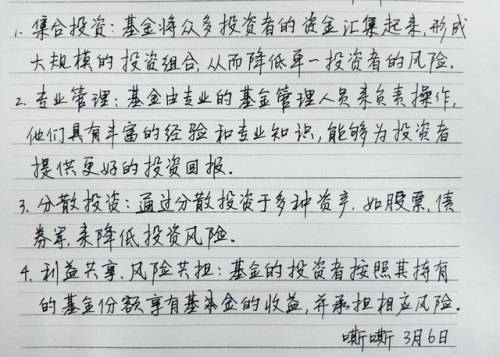 1. 集合投资：基金将众多投资者的资金汇集起来,形成
大规模的投资组合,从而降低单一投资者的风险.
2. 专业管理：基金由专业的基金管理人员来负责操作,
他们具有丰富的经验和专业知识,能够为投资者
提供更好的投资回报.
3. 分散投资：通过分散投资于多种资产,如股票、债
券等,来降低投资风险.
4. 利益共享、风险共担：基金的投资者按照其持有
的基金份额享有基本金的收益,并承担相应风险.
嘶嘶 3月6日